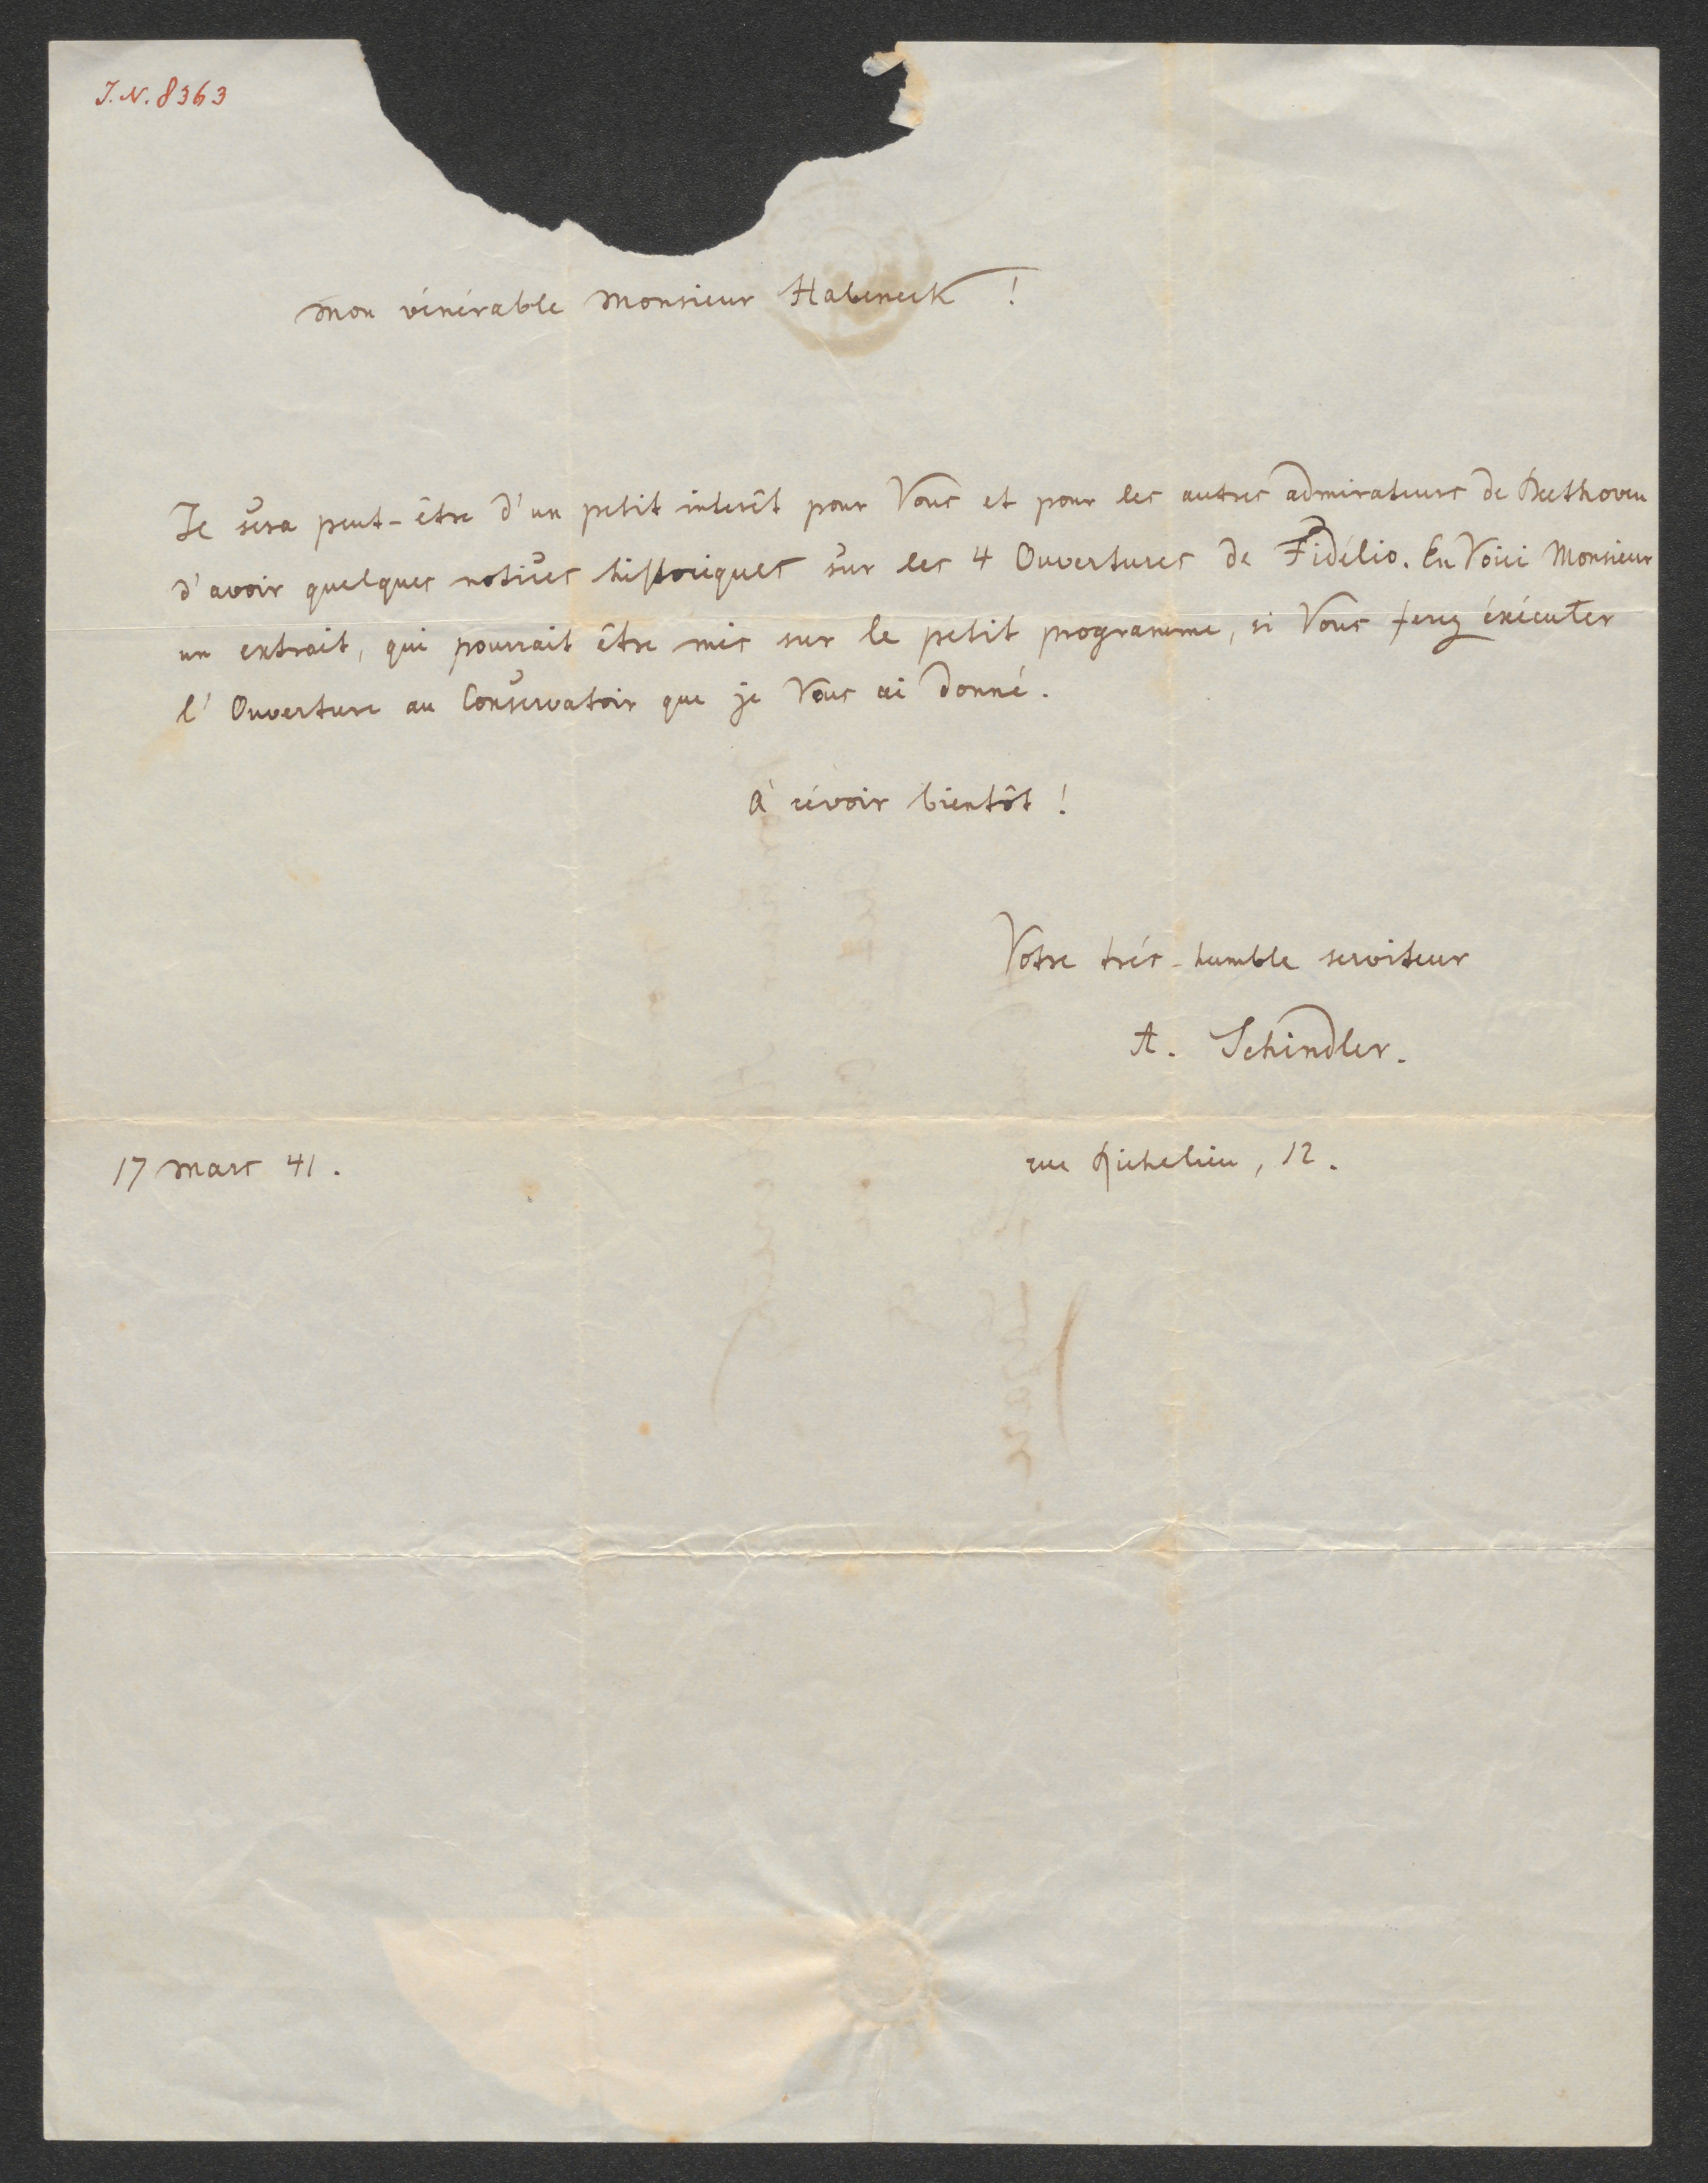 J.N. 8363
Mon vénérable Monsieur Habeneck !
Je sera peut-être d'un petit interêt pour Vous et pour les autres admirateurs de Beethoven
d'avoir quelques notices historiques sur les 4 Ouvertures de Fidélio. En Voici Monsieur
un extrait, qui pourrait être mis sur le petit programme, si Vous ferez éxécuter
l'Ouverture au Conservatoir que je Vous ai donné.
à révoir bientôt !
Votre trés-humble serviteur
A. Schindler.
17 Mars 41.
rue Richelieu, 12.